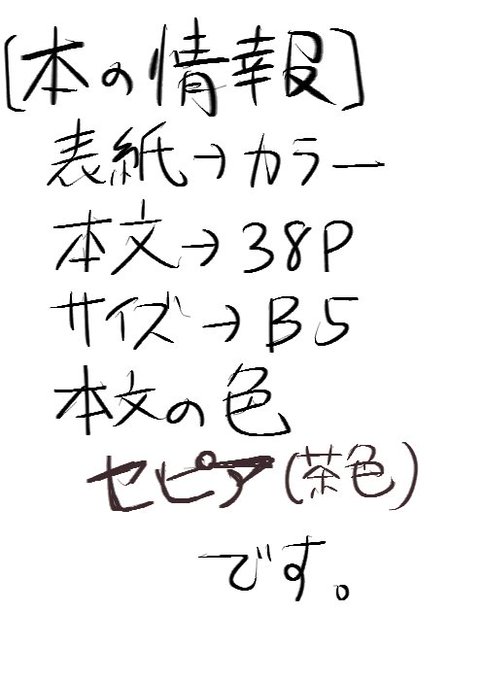 [本の情報]
表紙→カラー
本文→38P
サイズ→B5
本文の色
セピア(茶色)
です。